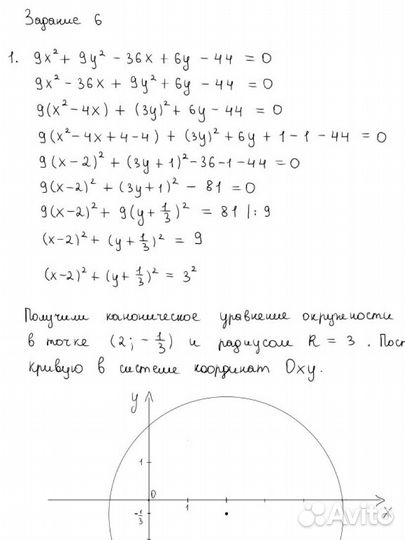 Задание 6
1. 9x² + 9y² - 36x + 6y - 44 = 0
9x² - 36x + 9y² + 6y - 44 = 0
9(x² - 4x) + (3y)² + 6y - 44 = 0
9(x² - 4x + 4 - 4) + (3y)² + 6y + 1 - 1 - 44 = 0
9(x - 2)² + (3y + 1)² - 36 - 1 - 44 = 0
9(x - 2)² + (3y + 1)² - 81 = 0
9(x - 2)² + 9(y + 1/3)² = 81 |: 9
(x - 2)² + (y + 1/3)² = 9
(x - 2)² + (y + 1/3)² = 3²
Получили каноническое уравнение окружности
в точке (2; -1/3) и радиусом R = 3. Пост
кривую в системе координат Oxy.
y
1
0
-1/3 1 x
Avito